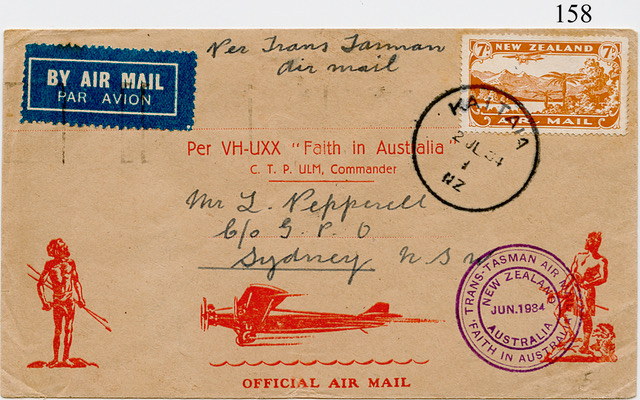 158
Per Trans Tasman
Air mail
BY AIR MAIL
PAR AVION
7D NEW ZEALAND 7D
AIR MAIL
KAITAIA
2 JL 34
1
NZ
Per VH-UXX "Faith in Australia"
C. T. P. ULM, Commander
Mr L. Pepperell
C/o G. P. O
Sydney N S W
TRANS-TASMAN AIR MAIL
NEW ZEALAND
JUN.1934
AUSTRALIA
"FAITH IN AUSTRALIA"
OFFICIAL AIR MAIL
5